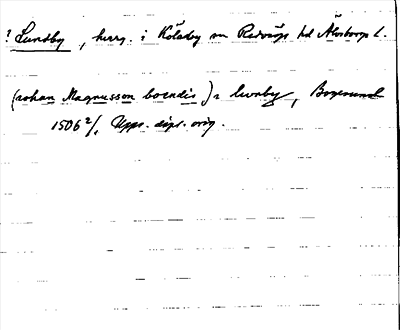 ? Lundby, herrg. i Kölaby sn Redvägs hd Älvsborgs l.
(johan Magnusson boendis) i lwnby, Bogesund
1506 2/1 Upps. dipl. orig.